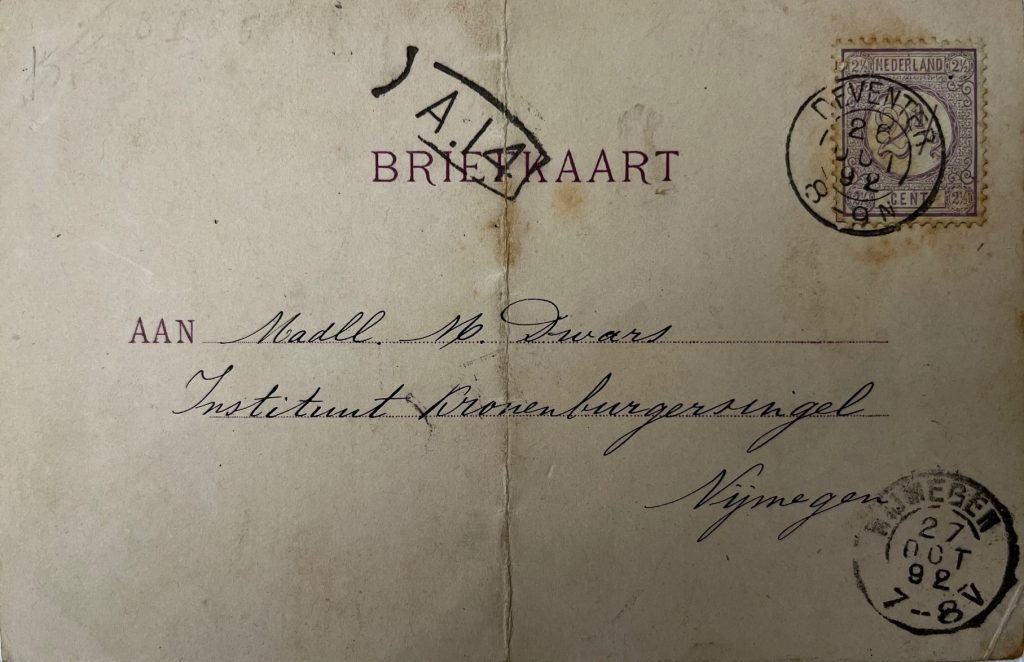 A.14
BRIEFKAART
2½ NEDERLAND 2½
CENT 2½
DEVENTER
OCT
92
8-9N
AAN Madll. M. Dwars
Instituut Kronenburgersingel
Nijmegen
NIJMEGEN
27
OCT
92
7-8V